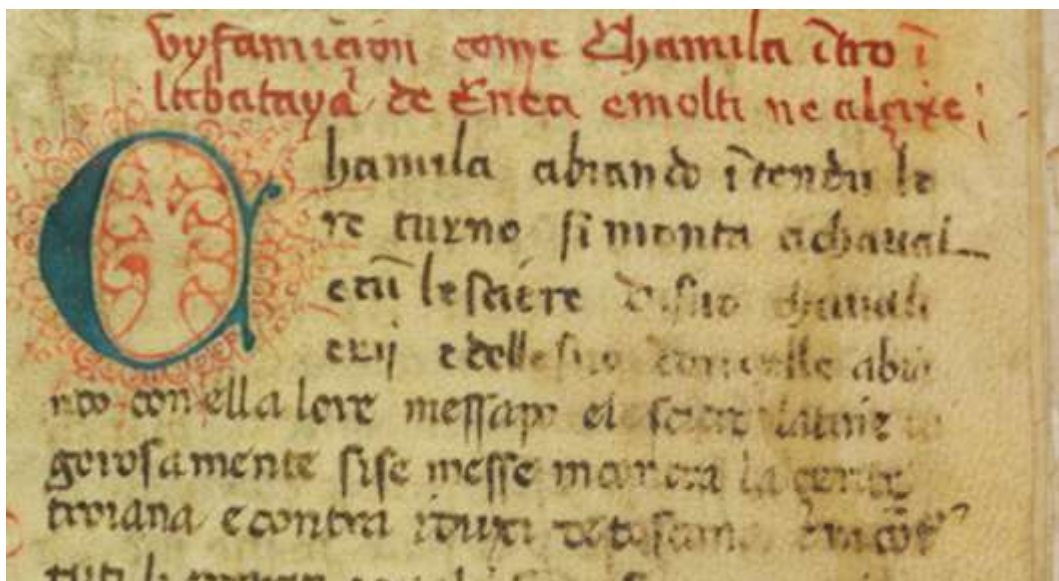 come Chamila itro i
la bataya de Enea e molti ne alcixe
Chamila abiando itendu lo
re turno si monta a chaval
e cu le sciere di suo chavali
erij e delle suo doncelle abia
ndo con ella lo re messapo el sciere latine
gorosamente si se messe incontra la gente
troiana e contra i duxi de toscana
tuti